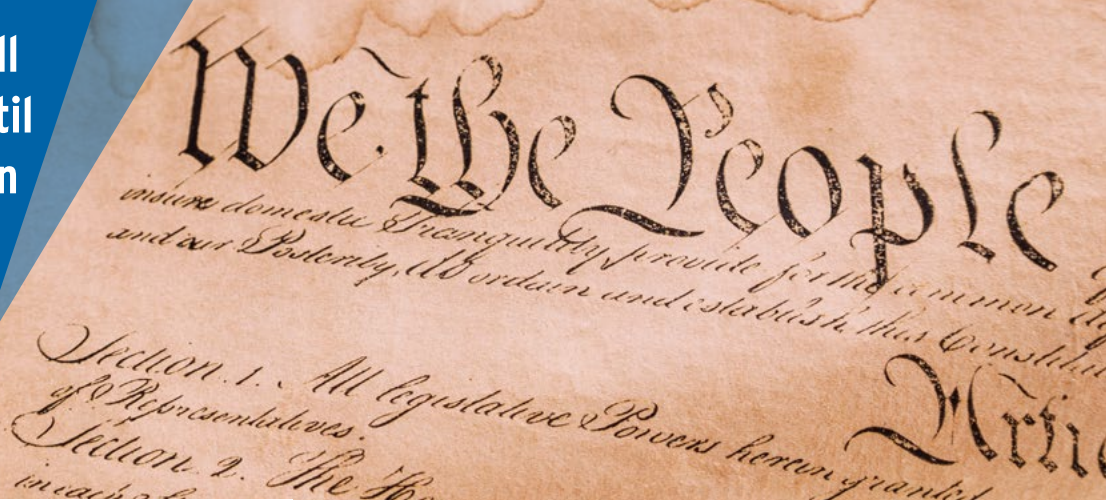 ll
til
n
We the People
insure domestic Tranquility, provide for the common
and our Posterity, do ordain and establish this Constitu
Arti
Section. 1. All legislative Powers herein granted
of Representatives.
Section. 2. The Ho
in each